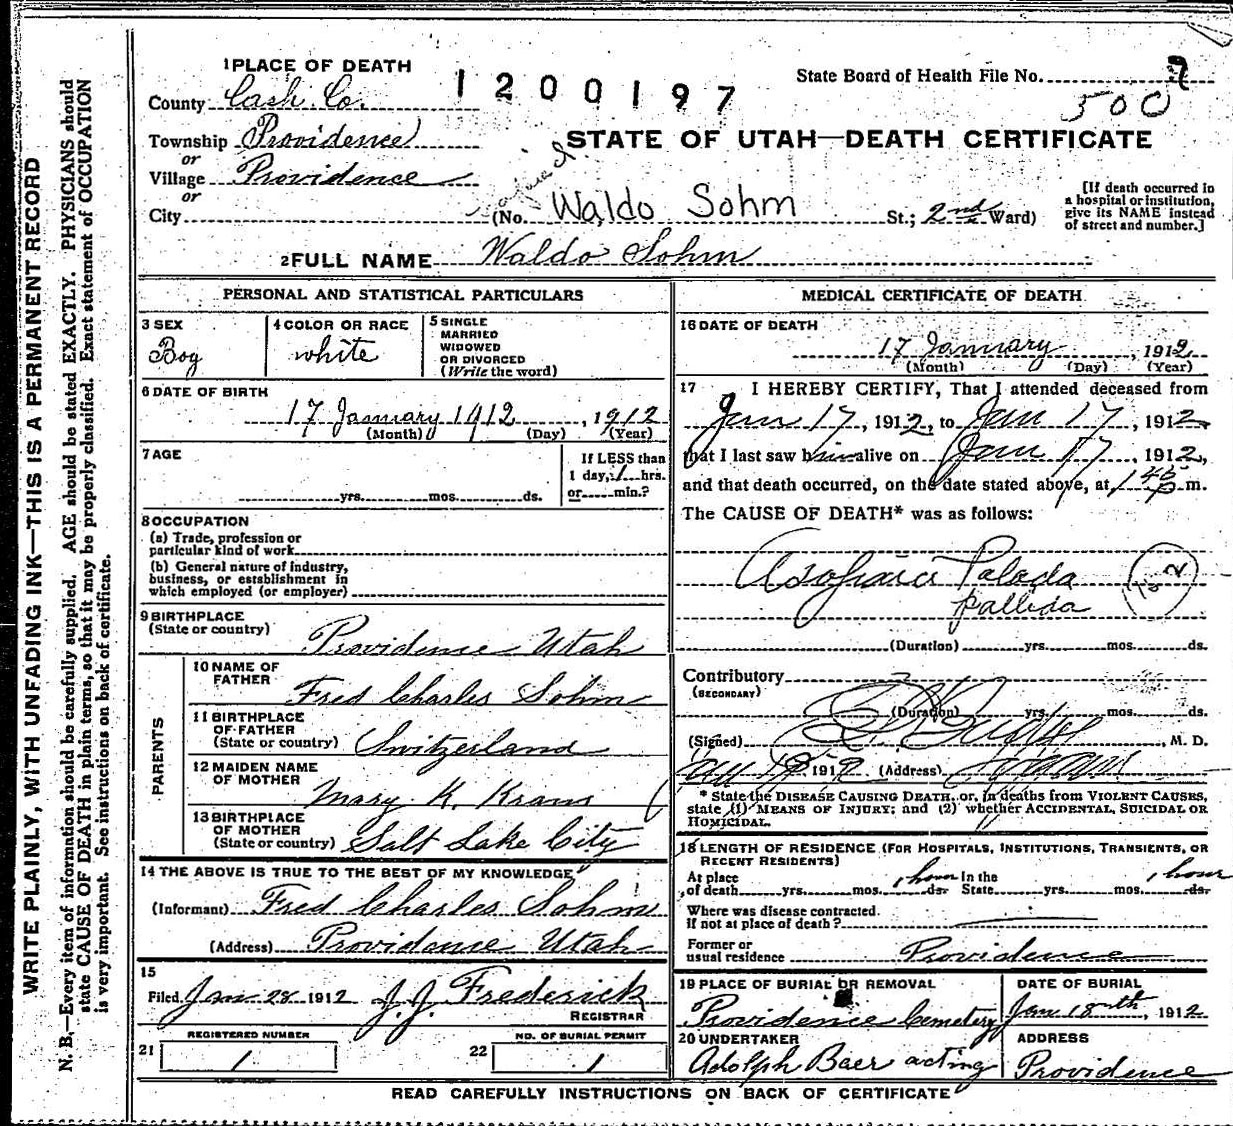 WRITE PLAINLY, WITH UNFADING INK—THIS IS A PERMANENT RECORD
N. B.—Every item of information should be carefully supplied. AGE should be stated EXACTLY. PHYSICIANS should
state CAUSE OF DEATH in plain terms, so that it may be properly classified. Exact statement of OCCUPATION
is very important. See instructions on back of certificate.
1 PLACE OF DEATH
County Cash Co.
Township Providence
or
Village Providence
or
City
1200197
State Board of Health File No. 9
500
STATE OF UTAH—DEATH CERTIFICATE
(No. Waldo Sohm St.; 2nd Ward)
[If death occurred in
a hospital or institution,
give its NAME instead
of street and number.]
2 FULL NAME Waldo Sohm
PERSONAL AND STATISTICAL PARTICULARS
3 SEX
Boy
4 COLOR OR RACE
white
5 SINGLE
MARRIED
WIDOWED
OR DIVORCED
(Write the word)
6 DATE OF BIRTH
17 January 1912, 1912
(Month) (Day) (Year)
7 AGE
yrs. mos. ds.
If LESS than
1 day, 1 hrs.
or min.?
8 OCCUPATION
(a) Trade, profession or
particular kind of work
(b) General nature of industry,
business, or establishment in
which employed (or employer)
9 BIRTHPLACE
(State or country)
Providence Utah
PARENTS
10 NAME OF
FATHER
Fred Charles Sohm
11 BIRTHPLACE
OF FATHER
(State or country)
Switzerland
12 MAIDEN NAME
OF MOTHER
Mary K.
13 BIRTHPLACE
OF MOTHER
(State or country)
Salt Lake City
14 THE ABOVE IS TRUE TO THE BEST OF MY KNOWLEDGE
(Informant) Fred Charles Sohm
(Address) Providence Utah
15
Filed Jan 28 1912 J. J. Frederick
REGISTRAR
REGISTERED NUMBER
21 1
NO. OF BURIAL PERMIT
22 1
MEDICAL CERTIFICATE OF DEATH
16 DATE OF DEATH
17 January, 1912
(Month) (Day) (Year)
17 I HEREBY CERTIFY, That I attended deceased from
Jan 17, 1912, to Jan 17, 1912
that I last saw him alive on Jan 17, 1912,
and that death occurred, on the date stated above, at 1 45 p m.
The CAUSE OF DEATH* was as follows:
Palada
pallida
(Duration) yrs. mos. ds.
Contributory
(SECONDARY)
(Duration) yrs. mos. ds.
(Signed) , M. D.
1912 (Address)
* State the DISEASE CAUSING DEATH, or, in deaths from VIOLENT CAUSES,
state (1) MEANS OF INJURY; and (2) whether ACCIDENTAL, SUICIDAL OR
HOMICIDAL.
18 LENGTH OF RESIDENCE (FOR HOSPITALS, INSTITUTIONS, TRANSIENTS, OR
RECENT RESIDENTS)
At place
of death yrs. mos. 1 hour ds. In the
State yrs. mos. 1 hour ds.
Where was disease contracted,
if not at place of death?
Former or
usual residence Providence
19 PLACE OF BURIAL OR REMOVAL
Providence Cemetery
DATE OF BURIAL
Jan 18th, 1912
20 UNDERTAKER
Adolph Baer acting
ADDRESS
Providence
READ CAREFULLY INSTRUCTIONS ON BACK OF CERTIFICATE